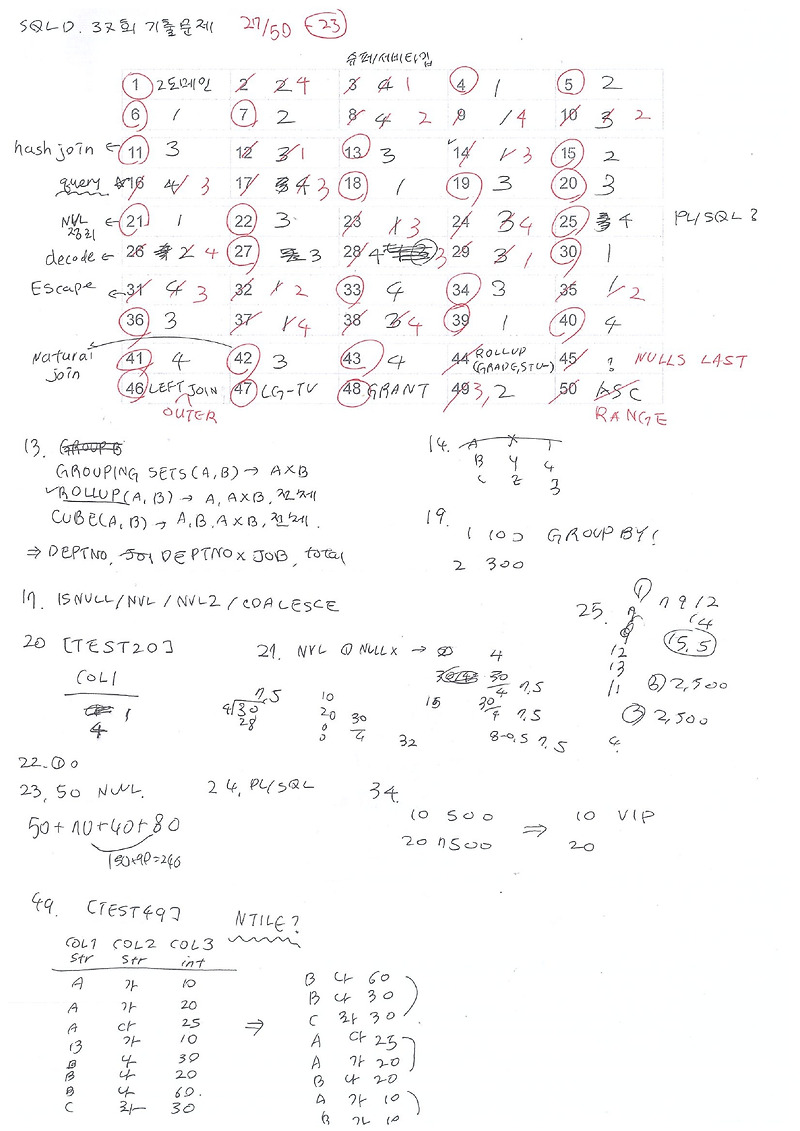 SQLD. 37회 기출문제 27/50 -23
슈퍼/서브타입
1 2도메인 2 2 4 3 4 1 4 1 5 2
6 1 7 2 8 4 2 9 1 4 10 3 2
hash join ← 11 3 12 3 1 13 3 14 1 3 15 2
query 16 4 3 17 3 4 3 18 1 19 3 20 3
NVL 정리 ← 21 1 22 3 23 1 3 24 3 4 25 4 PL/SQL ?
decode ← 26 2 4 27 3 28 4 3 29 3 1 30 1
Escape ← 31 4 3 32 1 2 33 4 34 3 35 1 2
36 3 37 1 4 38 3 4 39 1 40 4
Natural join 41 4 42 3 43 4 44 ROLLUP (GRADE, STU-) 45 ? NULLS LAST
46 LEFT JOIN 47 LG-TV 48 GRANT 49 3, 2 50 ASC
OUTER RANGE
13. GROUP B
GROUPING SETS(A, B) → A×B
✓ROLLUP(A, B) → A, A×B, 전체
CUBE(A, B) → A, B, A×B, 전체.
⇒ DEPTNO, DEPTNO × JOB, total
14. A X 1
B Y 4
C Z 3
19.
1 100 GROUP BY!
2 300
17. ISNULL / NVL / NVL2 / COALESCE
20 [TEST20]
COL1
1
4
21. NVL ① NULL X → 4
30 30/4 7.5
15 30/4 7.5
32 8-0.5 7.5
7.5
4 30
28
10
20
0
0 30/4
25. ① 7 9 12
14
15.5
12
13
11 ② 2,500
③ 2,500
4.
22. ① 0
23, 50 NULL.
24, PL/SQL
50 + 10 + 40 + 80
34.
10 500 ⇒ 10 VIP
20 7500 20
49. [TEST49] NTILE?
COL1 COL2 COL3
str str int
A 가 10
A 가 20
A 다 25
B 가 10
B 나 30
B 나 20
B 나 60.
C 라 30
⇒
B 나 60
B 나 30
C 라 30
A 다 25
A 가 20
B 나 20
A 가 10
B 가 10